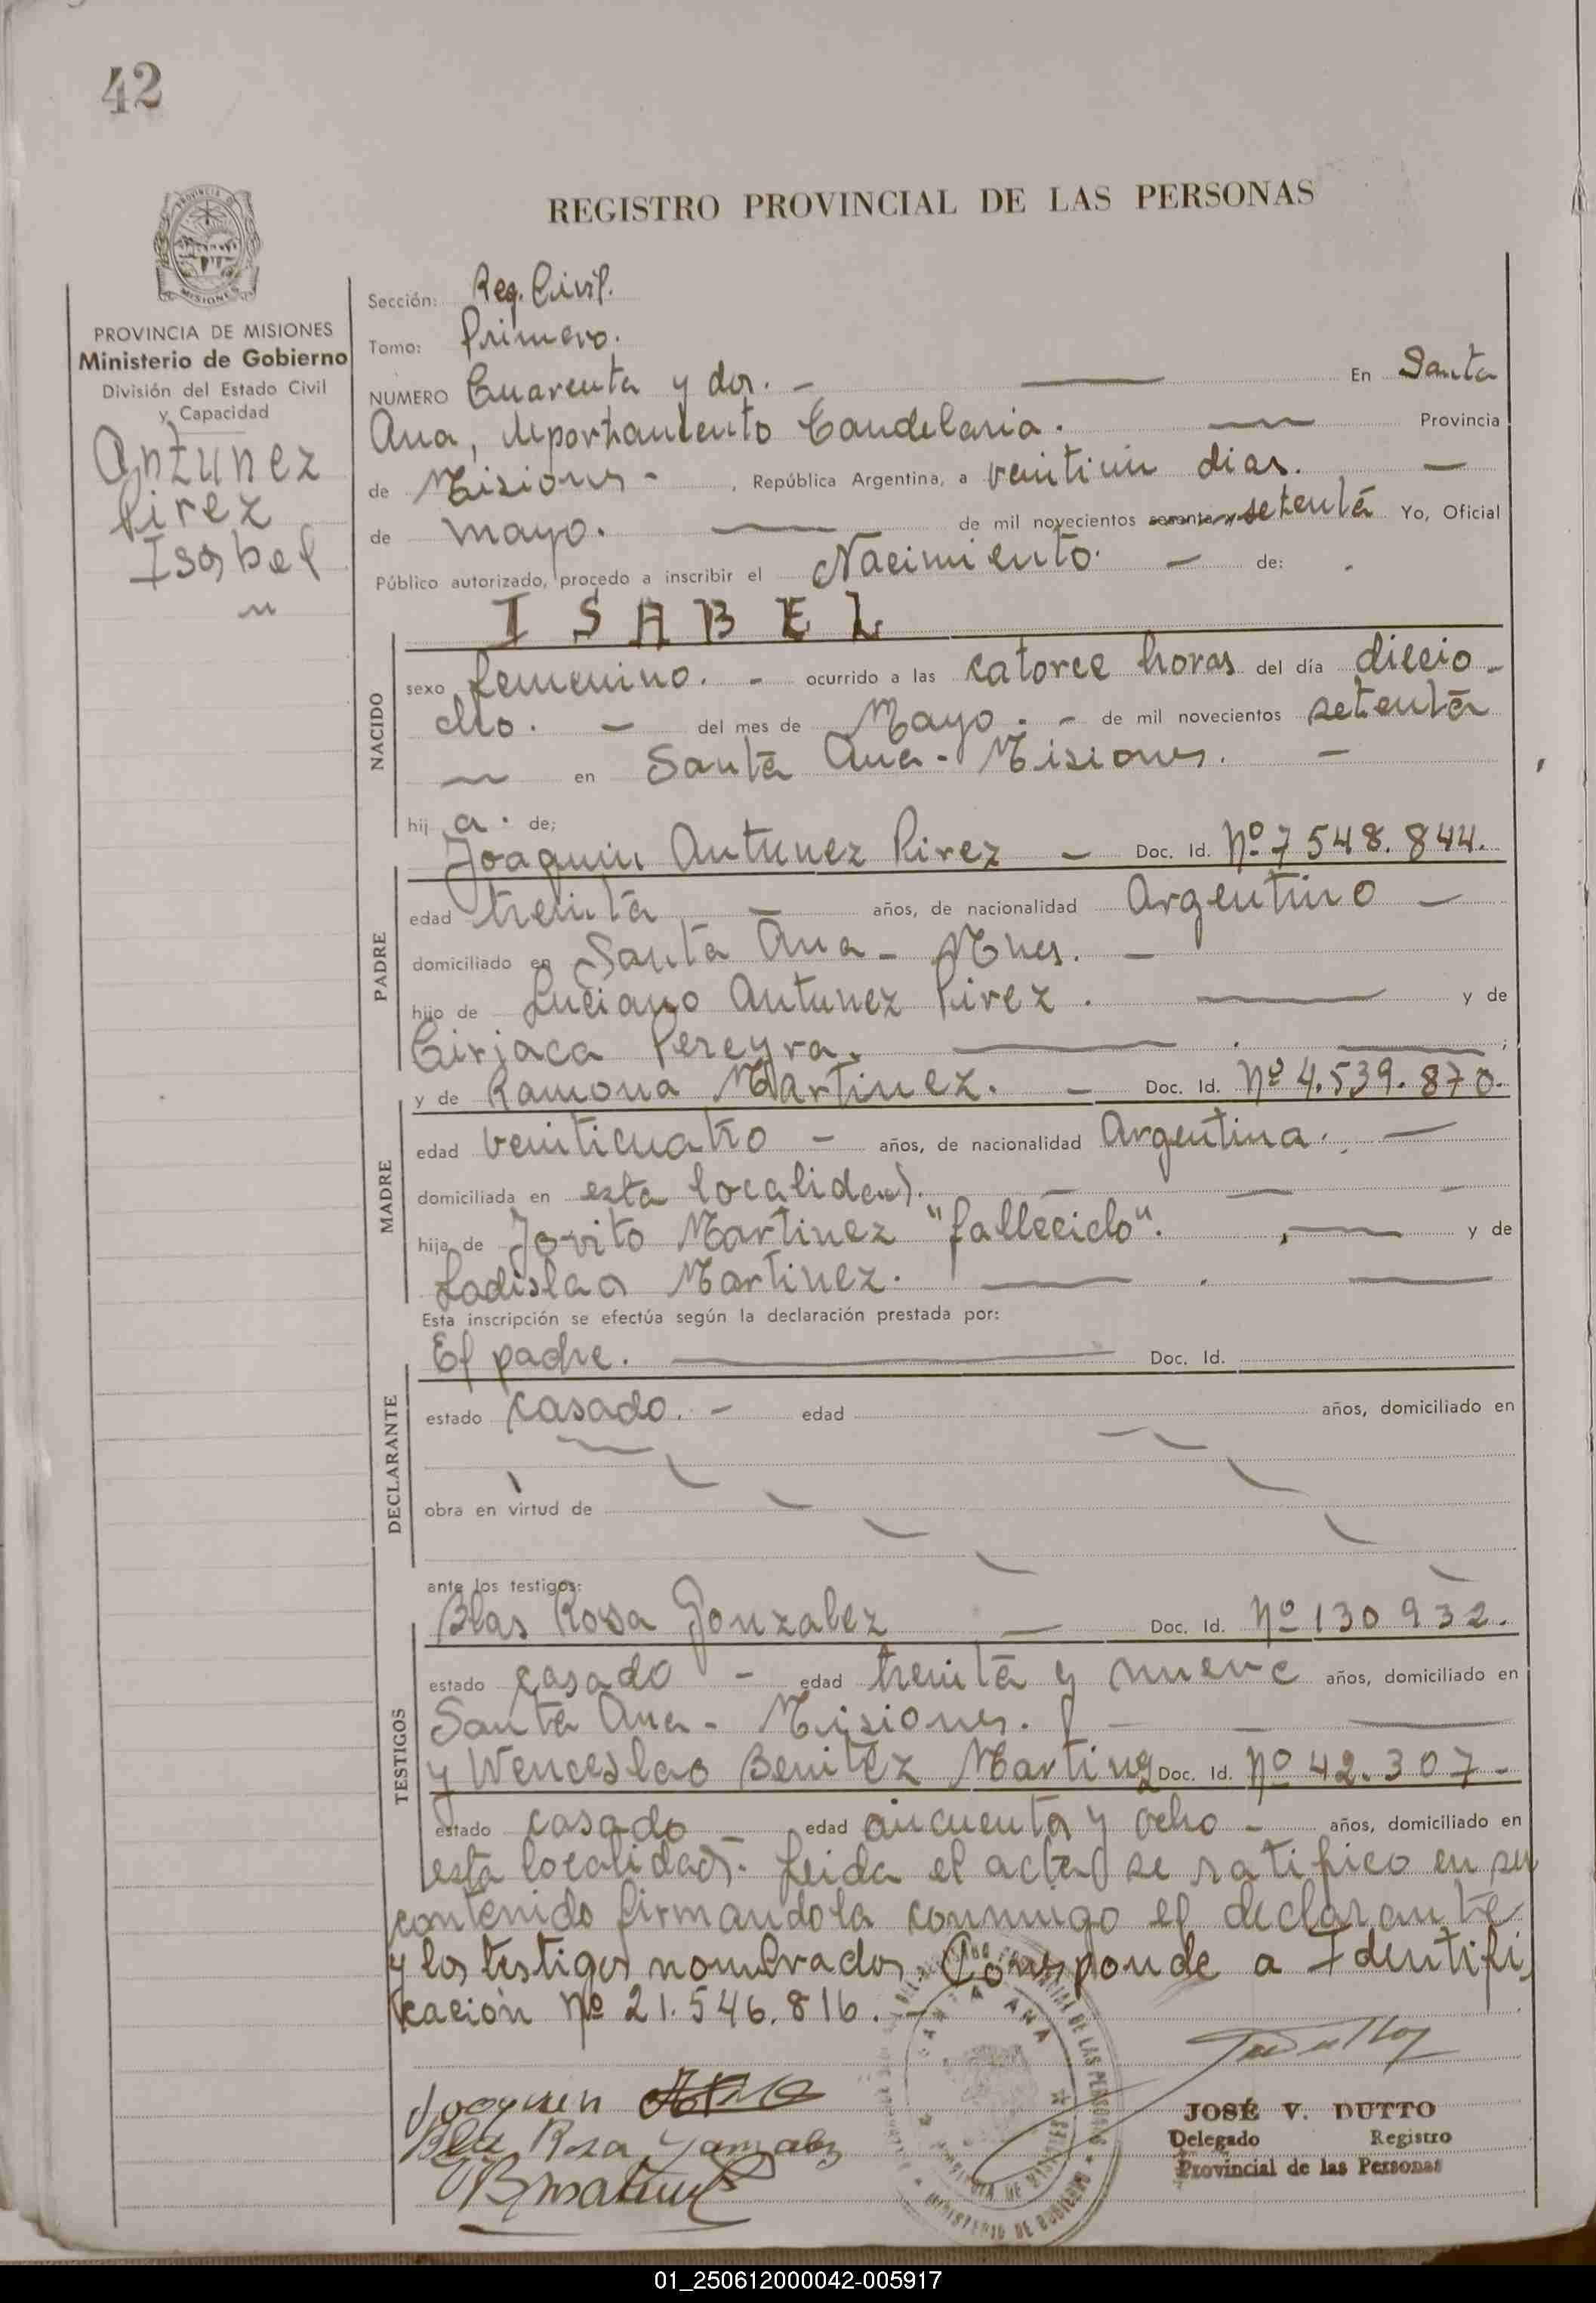 42
REGISTRO PROVINCIAL DE LAS PERSONAS
MISIONES
PROVINCIA DE MISIONES
Ministerio de Gobierno
División del Estado Civil
y Capacidad
Antunez
Pirez
Isabel
Sección: Reg. Civil.
Tomo: Primero.
NUMERO Cuarenta y dos. - En Santa
Ana, departamento Candelaria. Provincia
de Misiones - , República Argentina, a veintiun dias. -
de mayo. de mil novecientos setenta Yo, Oficial
Público autorizado, procedo a inscribir el Nacimiento. - de:
ISABEL
NACIDO
sexo femenino. - ocurrido a las catorce horas del día diecio-
cho. - del mes de Mayo. - de mil novecientos setenta
en Santa Ana - Misiones. -
hij a. de;
Joaquin Antunez Pirez - Doc. Id. Nº 7548.844.
PADRE
edad treinta - años, de nacionalidad Argentino -
domiciliado en Santa Ana - Mnes. -
hijo de Luciano Antunez Pirez. y de
Cirjaca Pereyra. ;
y de Ramona Martinez. - Doc. Id. Nº 4.539.870.
MADRE
edad veinticuatro - años, de nacionalidad Argentina. -
domiciliada en esta localidad.
hija de Jovito Martinez "fallecido". y de
Ladislaa Martinez.
Esta inscripción se efectúa según la declaración prestada por:
El padre. Doc. Id.
DECLARANTE
estado casado. - edad años, domiciliado en
obra en virtud de
ante los testigos:
Blas Rosa Gonzalez - Doc. Id. Nº 130932.
TESTIGOS
estado casado - edad treinta y nueve años, domiciliado en
Santa Ana - Misiones.
y Wenceslao Benitez Martinez Doc. Id. Nº 42.307-
estado casado - edad cincuenta y ocho - años, domiciliado en
esta localidad. Leida el acta se ratifico en su
contenido firmandola conmigo el declarante
y los testigos nombrados. Corresponde a Identifi
cación Nº 21.546.816. -
SANTA ANA
PROVINCIA DE MISIONES
MINISTERIO DE GOBIERNO
Joaquin
Blas Rosa Gonzalez
JOSÉ V. DUTTO
Delegado Registro
Provincial de las Personas
01_250612000042-005917